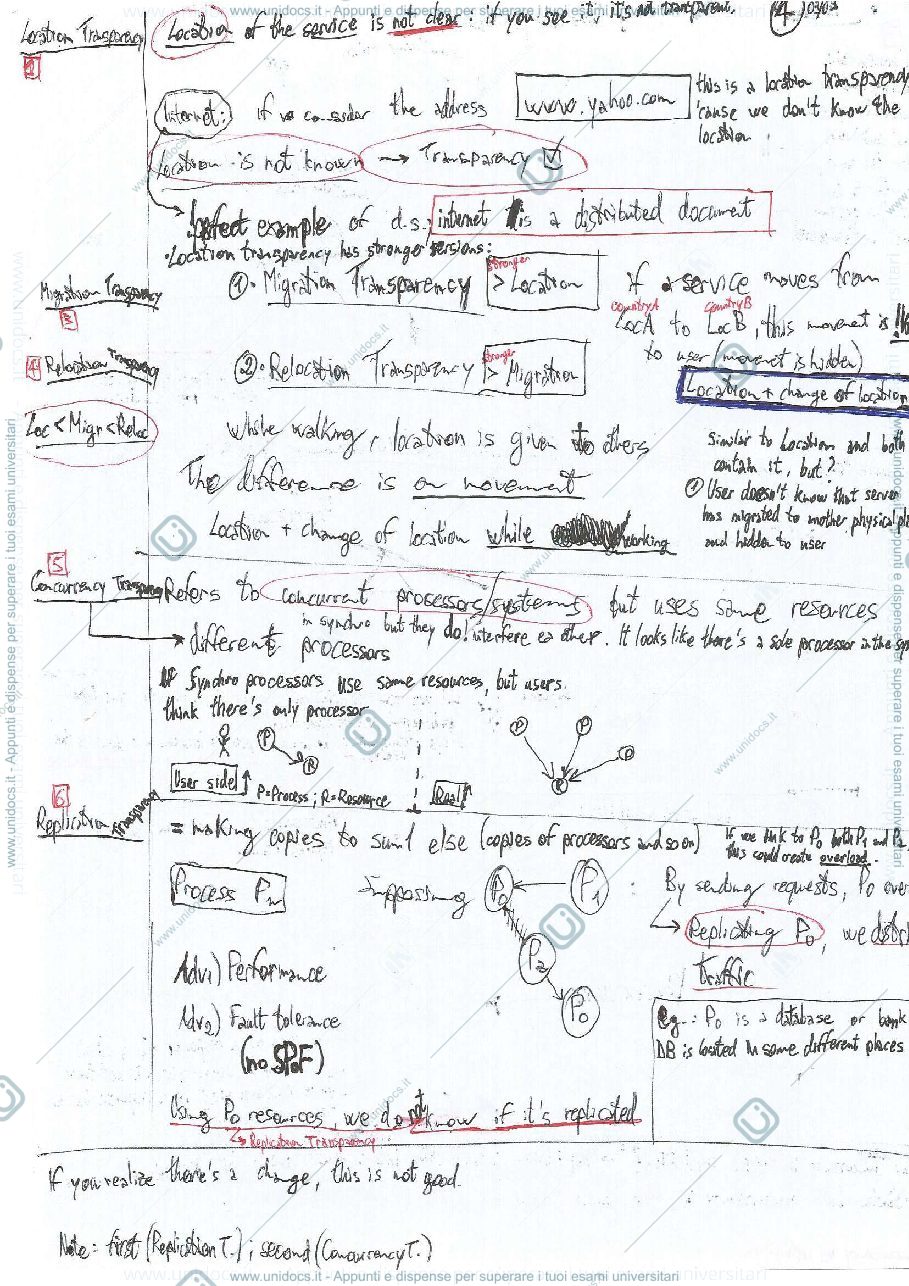 www.unidocs.it - Appunti e dispense per superare i tuoi esami universitari
Location Transparency
Location of the service is not clear: if you see ..., it's not transparent.
4
Internet: if we consider the address www.yahoo.com
this is a location transparency
'cause we don't know the
location.
Location is not known → Transparency
Perfect example of d.s.: internet is a distributed document
• Location transparency has stronger versions:
Migration Transparency
① • Migration Transparency stronger > Location
if a service moves from
Country A Country B
Loc A to Loc B, this movement is
to user (movement is hidden)
Location + change of location
4 Relocation Transparency
② • Relocation Transparency stronger > Migration
Loc < Migr < Reloc
While walking, location is given to others
The difference is on movement
Location + change of location while working
Similar to Location and both
contain it, but?
① User doesn't know that server
has migrated to another physical
and hidden to user
5
Concurrency
Refers to concurrent processors/systems but uses same resources
in synchro but they do! interfere each other. It looks like there's a sole processor in the
→ different processors
If synchro processors use same resources, but users
think there's only processor
P
R
User side
P=Process; R=Resource
P
P
P
R
Real
6
Replication Transparency
= making copies to sum1 else (copies of processors and so on)
If we link to P0 both P1 and P2,
this could create overload.
Process Pn
Suppossing
P0
P1
P2
P0
By sending requests, P0
→ Replicating P0, we
traffic
Adv1) Performance
Adv2) Fault tolerance
(no SPoF)
Eg.: P0 is a database or bank
DB is located in some different places
Using P0 resources, we do not know if it's replicated
→ Replication Transparency
If you realize there's a change, this is not good.
Note: first (Replication T.); second (Concurrency T.)
www.unidocs.it - Appunti e dispense per superare i tuoi esami universitari